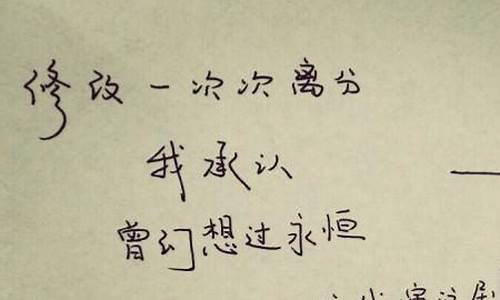 修改一次次离分
我承认
曾幻想过永恒